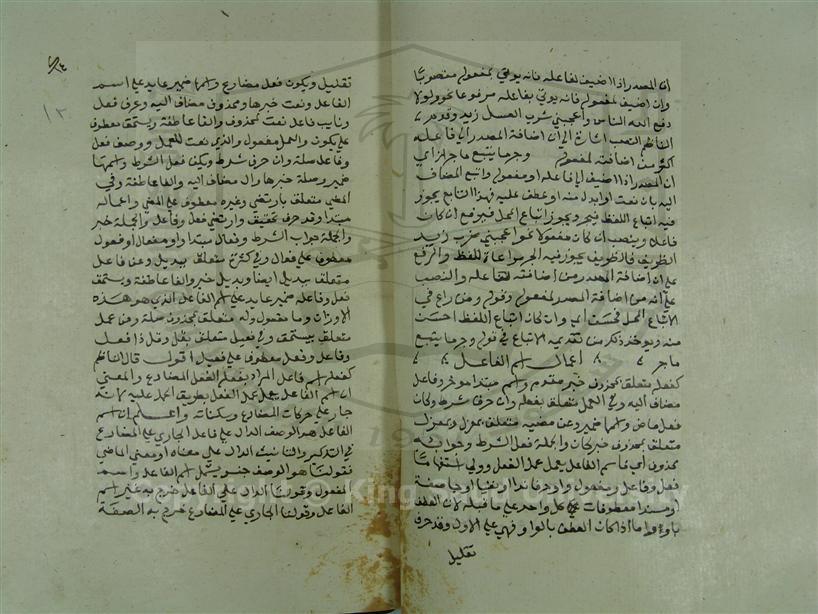 ان المصدر اذا اضيف لفاعله فانه يوتى بمفعوله منصوبا
وان اضيف لمفعوله فانه يوتى بفاعله مرفوعا نحو ولولا
دفع الله الناس واعجبني شرب العسل زيد وقدم
الناظم النصب اشارة الى ان اضافة المصدر الى فاعله
اكثر من اضافته لمفعوله وجر ما يتبع ما جر اي
ان المصدر اذا اضيف الى فاعله او مفعوله واتبع المضاف
اليه بان نعت او ابدل منه او عطف عليه فهذا التابع يجوز
فيه اتباع اللفظ فيجر ويجوز اتباع المحل فيرفع ان كان
فاعلا وينصب ان كان مفعولا نحو اعجبني ضرب زيد
الظريف فالظريف يجوز فيه الجر مراعاة للفظ والرفع
على ان اضافة المصدر من اضافته للفاعل والنصب
على انه من اضافة المصدر لمفعوله وقوله ومن راعى في
الاتباع المحل فحسن اي وان كان اتباع اللفظ احسن
منه ويوخذ ذلك من تقديمه الاتباع في قوله وجر ما يتبع
ما جر اعمال اسم الفاعل
كفعله متعلق بمحذوف خبر مقدم واسم مبتدا موخر وفاعل
مضاف اليه وفي العمل متعلق بفعله وان حرف شرط وكان
فعل ماض واسمها ضمير وعن مضيه متعلق بمعزل وبمعزل
متعلق بمحذوف خبر كان والجملة فعل الشرط وجوابه
محذوف اي فاسم الفاعل يعمل عمل الفعل وولي استفهاما
فعل وفاعل ومفعول او حرف ندا او نفيا او جا صفة
او مسندا معطوفات كل واحد على ما قبله لان العطف
باو واما اذا كان العطف بالواو فهي على الاول وقد حرف
تقليل
١٢
تقليل ويكون فعل مضارع واسمها ضمير عايد على اسم
الفاعل ونعت خبرها ومحذوف مضاف اليه وعرف فعل
ونايب فاعل نعت لمحذوف والفا عاطفة ويستحق معطوف
على يكون والعمل مفعول والذي نعت للعمل ووصف فعل
وفاعل صلة وان حرف شرط ويكن فعل الشرط واسمها
ضمير وصلة خبرها وال مضاف اليه والفا عاطفة وفي
المضي متعلق بارتضي وغيره معطوف على المضي واعماله
مبتدا وقد حرف تحقيق وارتضي فعل وفاعل والجملة خبر
والجملة جواب الشرط وفعال مبتدا او مفعال او فعول
معطوف على فعال وفي كثرة متعلق ببديل وعن فاعل
متعلق ببديل ايضا وبديل خبر والفا عاطفة ويستحق
فعل وفاعله ضمير عايد على اسم الفاعل الذي هو هذه
الاوزان وما مفعول وله متعلق بمحذوف صلة ومن عمل
متعلق بيستحق وفي فعيل متعلق بقل وقل ذا فعل
وفاعل وفعل معطوف على فعيل اقول قال الناظم
كفعله اسم فاعل المراد بفعله الفعل المضارع والمعنى
ان اسم الفاعل يعمل عمل الفعل بطريق الحمل عليه لانه
جار على حركات المضارع وسكناته واعلم ان اسم
الفاعل هو الوصف الدال على فاعل الجاري على المضارع
في التذكير والتانيث الدال على معناه او معنى الماضي
فقولنا هو الوصف جنس يشمل اسم الفاعل واسم
المفعول وقولنا الدال على الفاعل خرج به غير اسم
الفاعل وقولنا الجاري على المضارع خرج به الصفة
Copyright © King Saud University